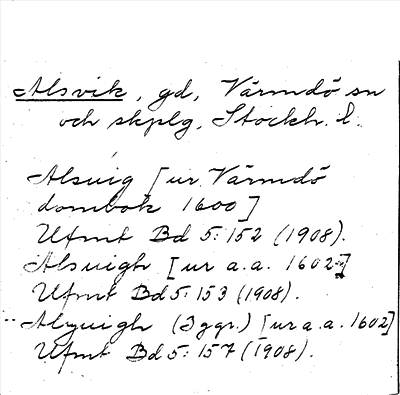 Alsvik, gd, Värmdö sn
och skplg, Stockh. l.
Alsuig [ur Värmdö
dombok 1600]
Ufmt Bd 5:152 (1908).
Alsuigh [ur a.a. 1602]
Ufmt Bd 5:153 (1908).
Alyuigh (3 ggr.) [ur a.a. 1602]
Ufmt Bd 5:157 (1908).